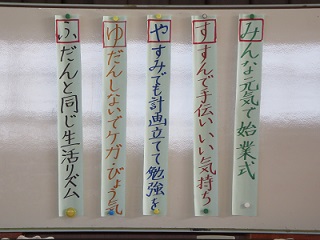 ふだんと同じ生活リズム
ゆだんしないでケガ・びょう気
やすみでも計画立てて勉強を
すすんで手伝いいい気持ち
みんな元気で始業式